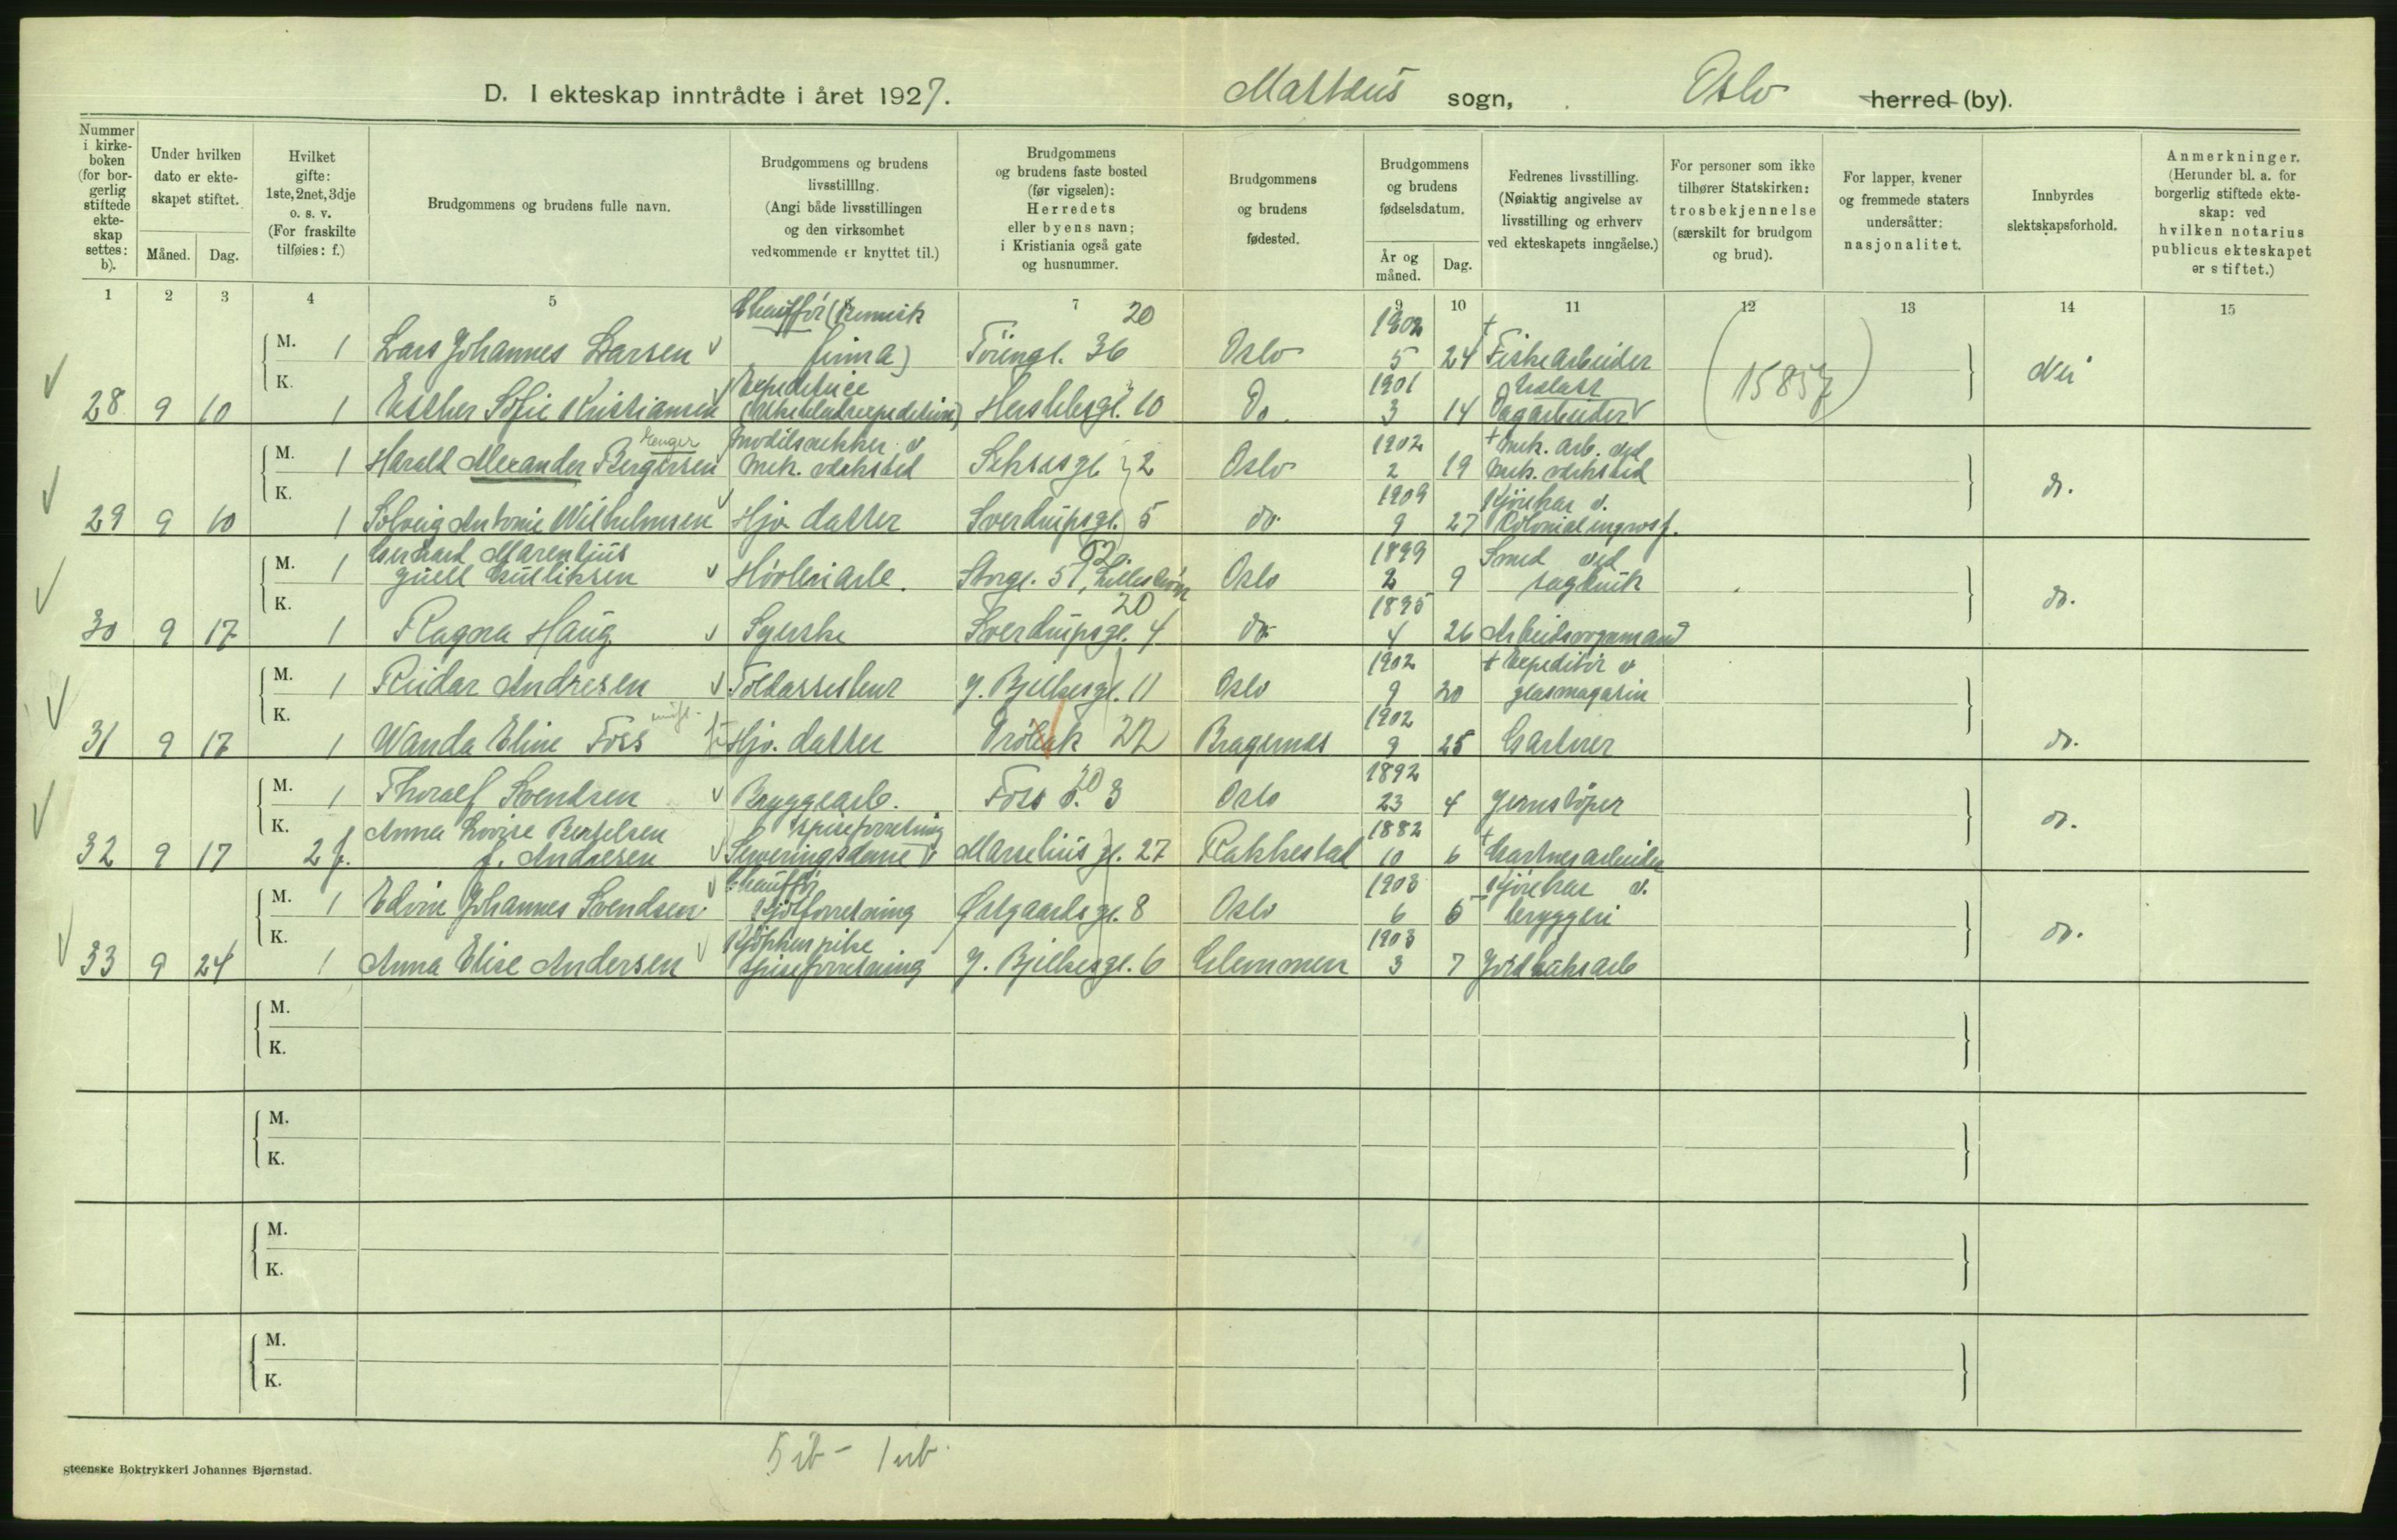 D. I ekteskap inntrådte i året 1927. Mattæus sogn, Oslo herred (by).
Nummer i kirke-boken (for bor-gerlig stiftede ekte-skap settes: b).
Under hvilken dato er ekte-skapet stiftet.
Måned. Dag.
Hvilket gifte: 1ste, 2net, 3dje o. s. v. (For fraskilte tilføies: f.)
Brudgommens og brudens fulle navn.
Brudgommens og brudens livsstilllng. (Angi både livsstillingen og den virksomhet vedkommende er knyttet til.)
Brudgommens og brudens faste bosted (før vigselen): Herredets eller byens navn; i Kristiania også gate og husnummer.
Brudgommens og brudens fødested.
Brudgommens og brudens fødselsdatum.
År og måned. Dag.
Fedrenes livsstilling. (Nøiaktig angivelse av livsstilling og erhverv ved ekteskapets inngåelse.)
For personer som ikke tilhører Statskirken: trosbekjennelse (særskilt for brudgom og brud).
For lapper, kvener og fremmede staters undersåtter: nasjonalitet.
Innbyrdes slektskapsforhold.
Anmerkninger. (Herunder bl. a. for borgerlig stiftede ekte-skap: ved hvilken notarius publicus ekteskapet er stiftet.)
1 2 3 4 5 7 9 10 11 12 13 14 15
Chauffør (kemisk 20 1902
M. 1 Lars Johannes Larsen firma) Töiengt. 36 Oslo 5 24 Fiskearbeider nei
K. Expeditrice 1901
28 9 10 1 Esther Sofie Kristiansen Herslebsgt. 10 Do. 3 14 Dagarbeider (15857)
Modelsnekker v. 1902 + Mek. arb. ved
M. 1 Harald Alexander Bergersen mek. verksted 2 Oslo 2 19 mek. verksted
K. 1909 Kjørekar v.
29 9 10 1 Solveig Antonie Wilhelmsen Hjv. datter Sverdrupsgt. 5 do. 9 27 Kolonialengrosf. do.
Gerhard Marentius 1899 Smed ved
M. 1 Juell Gulliksen Høvleriarb. Storgt. 51, Lillestrøm Oslo 2 9 sagbruk
K. 20 1895
30 9 17 1 Ragna Haug Syerske Sverdrupsgt. 4 do. 4 26 Arbeidsformand do.
1902 + Expeditör v
M. 1 Reidar Andresen Toldassistent J. Bjelkesgt. 11 Oslo 9 20 glasmagasin
K. 1902
31 9 17 1 Wanda Eline Foss Hjv. datter Drøbak 22 Bragernes 9 25 Gartner do.
1892
M. 1 Thoralf Svendsen Bryggearb. Foss 20 3 Oslo 23 4 Jernstöper
K. Anna Lovise Bertelsen spiseforretning 1882
32 9 17 2 f. f. Andresen Serveringsdame v Marselius gt. 27 Rakkestad 10 6 + Gartnerarbeider do.
Chauffør 1903 Kjørekar v.
M. 1 Edvin Johannes Svendsen Kjøtforretning Østgaards gt. 8 Oslo 6 5 bryggeri
K. Kjøkkenpike 1903
33 9 24 1 Anna Elise Andersen spiseforretning J. Bjelkesgt. 6 Glemmen 3 7 Jordbruksarb do.
M.
K.
M.
K.
M.
K.
M.
K.
5 ib - 1 ub
steenske Boktrykkeri Johannes Bjørnstad.